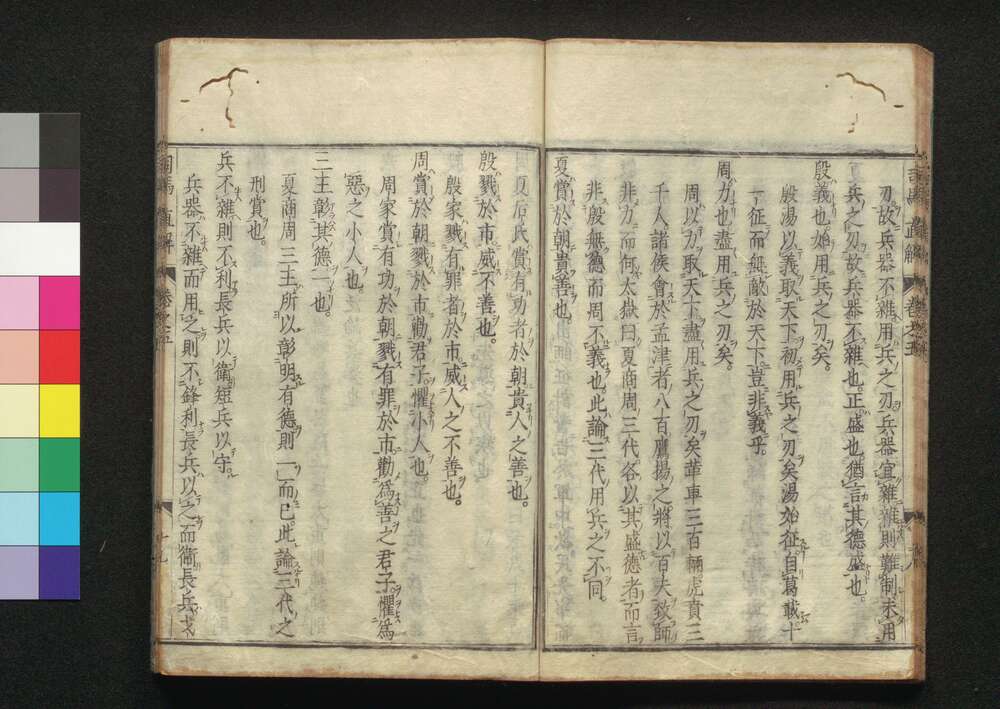 刃故兵器不雜用兵之刃兵器宜雜雜則難制未用
兵之刃故兵器不雜也正盛也猶言其德盛也
殷義也始用兵之刃矣
殷湯以義取天下初用兵之刃矣湯始征自葛載十
一征而無敵於天下豈非義乎
周力也盡用兵之刃矣
周以力取天下盡用兵之刃矣革車三百輛虎賁三
千人諸侯會於孟津者八百鷹揚之將以百夫致師
非力而何太嶽曰夏商周三代各以其盛德者而言
非殷無德而周不義也此論三代用兵之不同
夏賞於朝貴善也
夏后氏賞有功者於朝貴人之善也
殷戮於市威不善也
殷家戮有罪者於市威人之不善也
周賞於朝戮於市勸君子懼小人也
周家賞有功於朝戮有罪於市勸為善之君子懼為
惡之小人也
三王彰其德一也
夏商周三王所以彰明有德則一而已此論三代之
刑賞也
兵不雜則不利長兵以衞短兵以守
兵器不雜而用之則不鋒利長兵以之而衞長兵
司馬直解
卷之五
十九